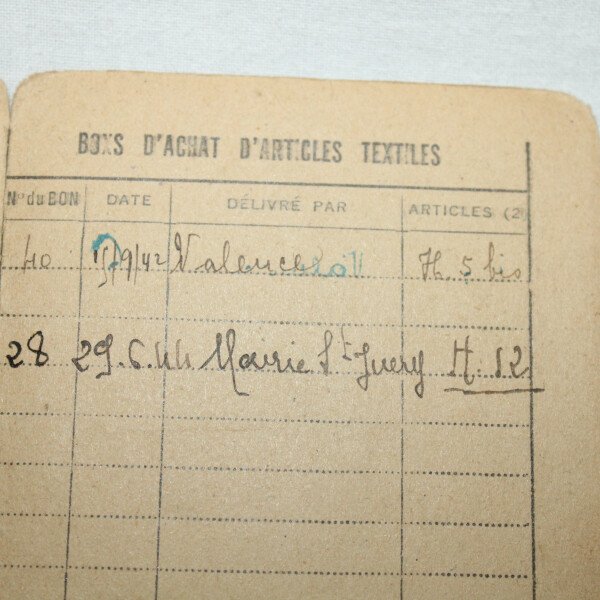 BONS D'ACHAT D'ARTICLES TEXTILES
N° du BON DATE DÉLIVRÉ PAR ARTICLES (2
40 15/9/42 Valence H. 5 bis
28 29.6.44 Mairie St Juery H. 12